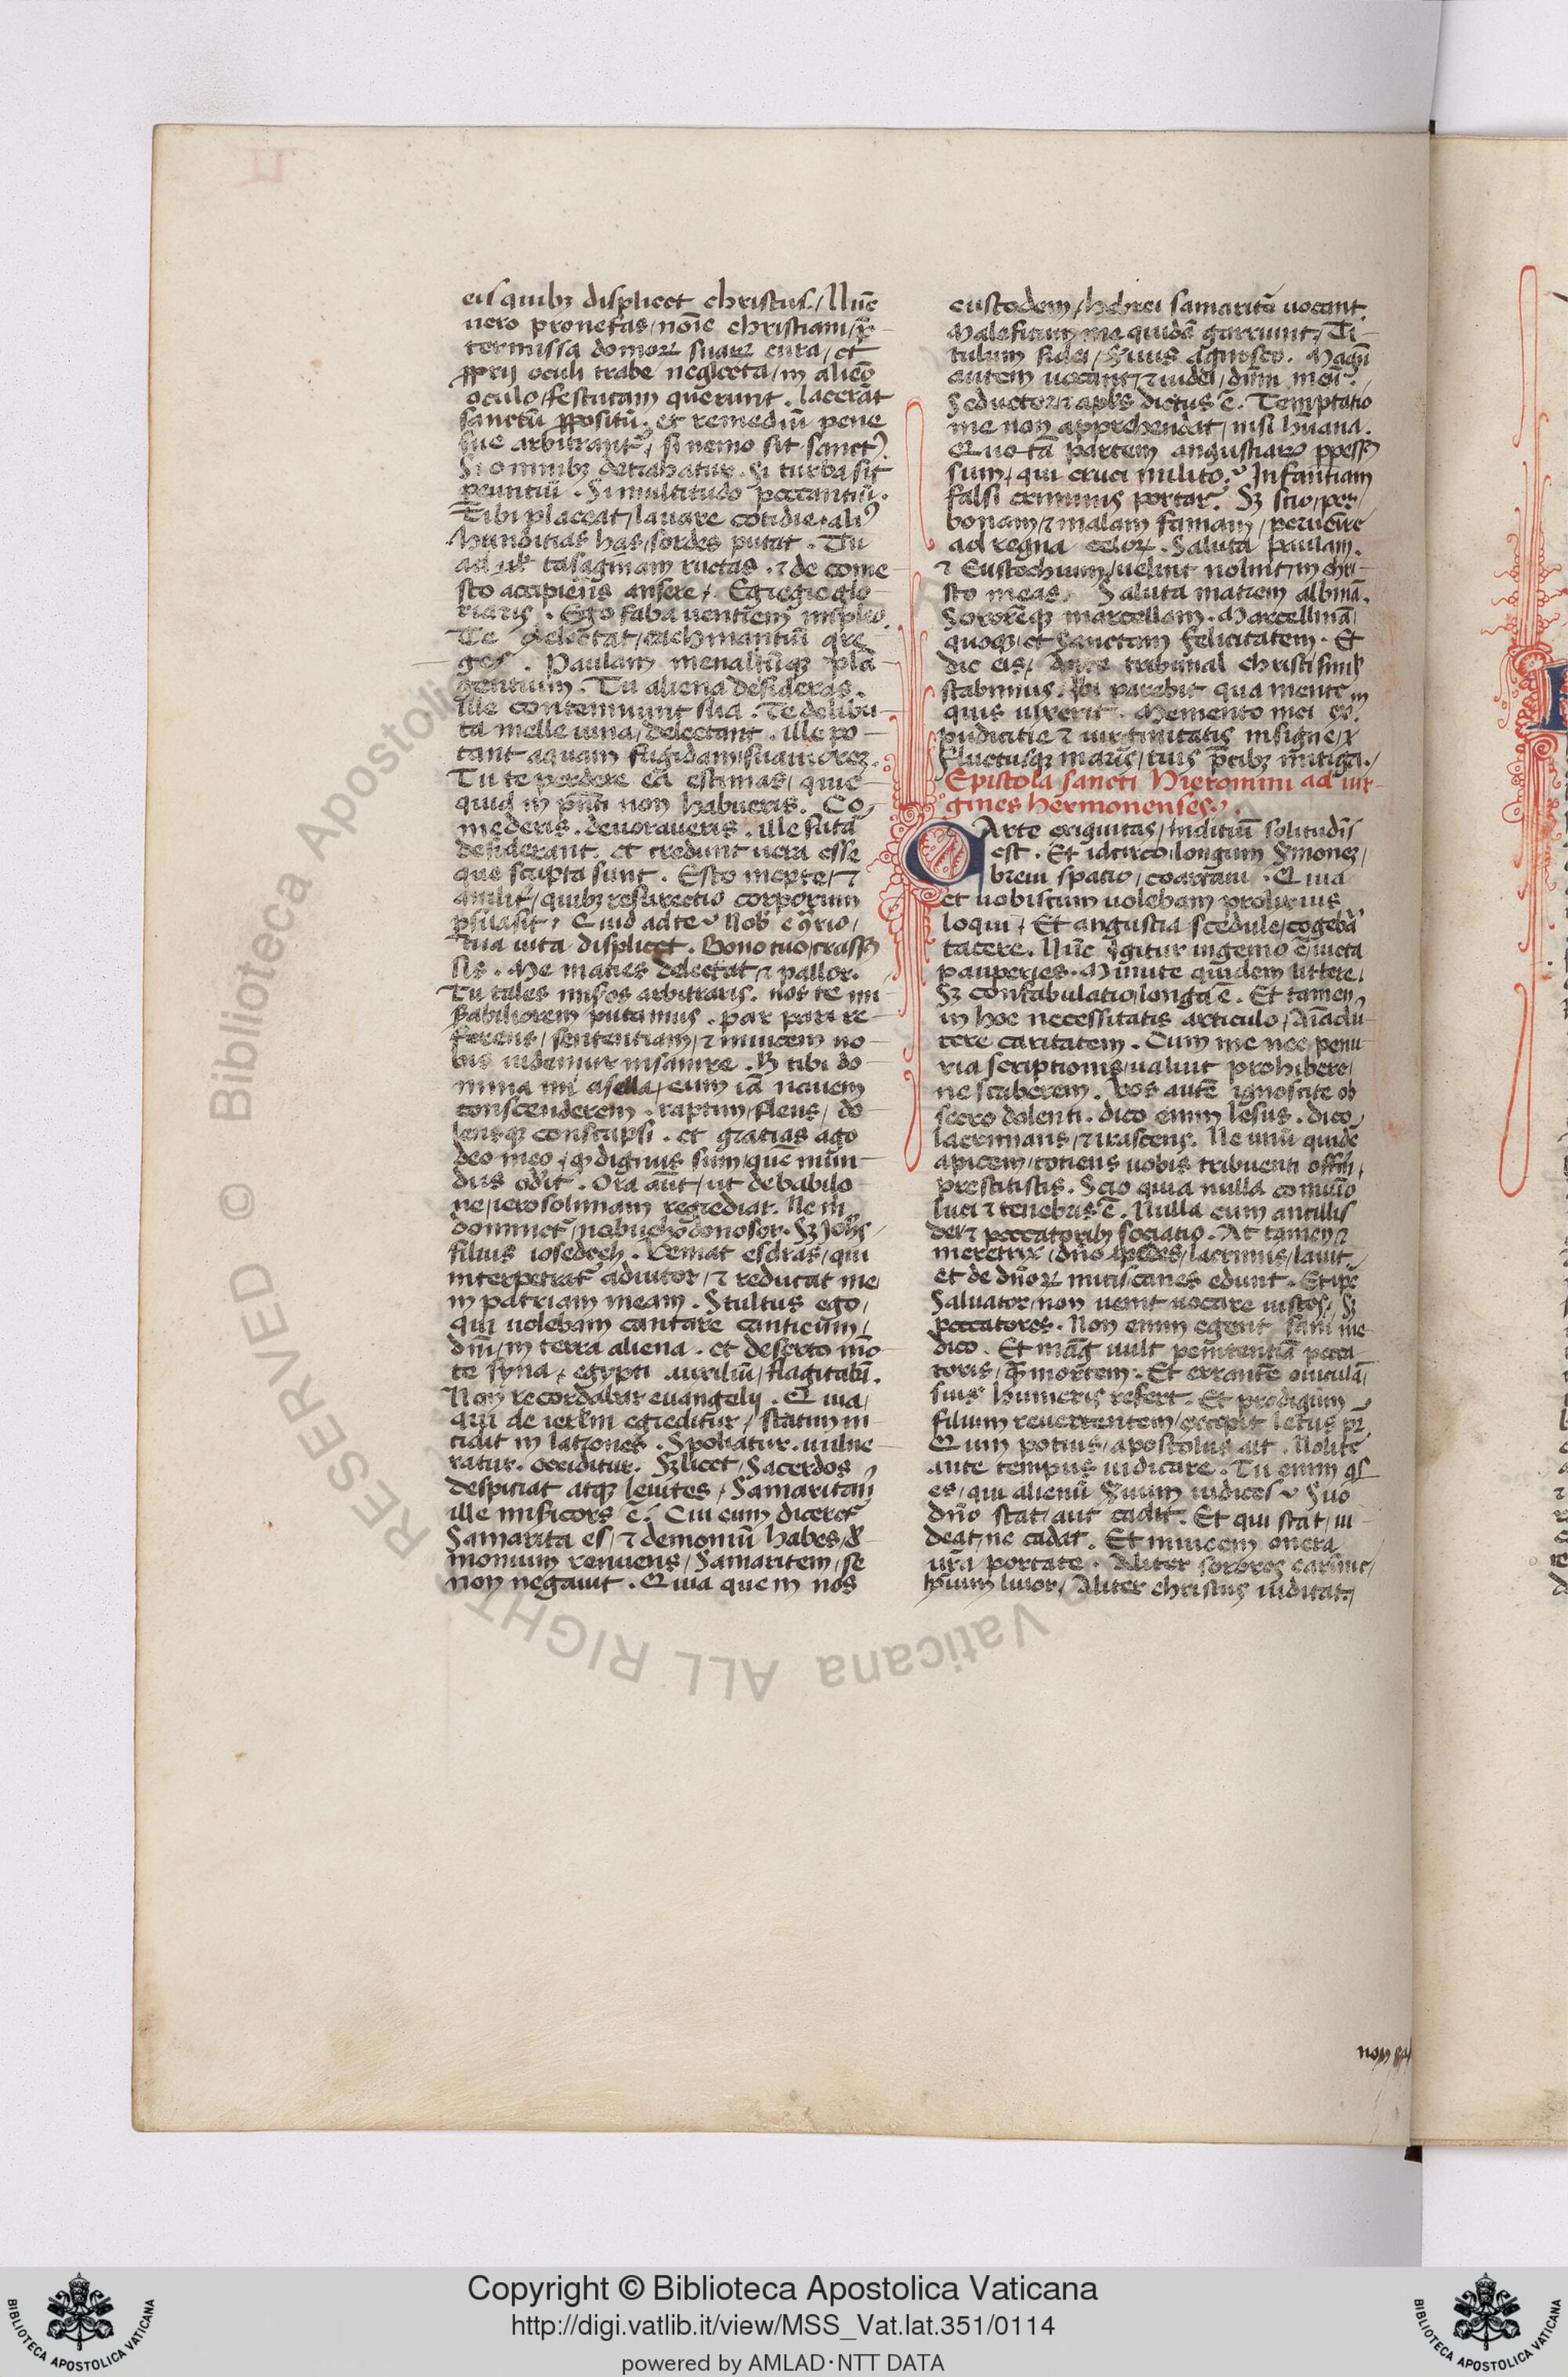 eis quibꝫ displicet christus./ Nūc
vero pronefas/ noīe christiani/ p̄r-
termissa domoꝝ suaꝝ cura/ et
ꝓprij oculi trabe neglecta/ in aliēo
oculo/ festucam querunt. lacerāt
sanctū ꝓpositū. et remediū pene
sue arbitrantᷣ/ si nemo sit sanctꝰ.
Si omnibꝫ detrahatur. Si turba sit
peuntiū. Si multitudo peccantiū.
Tibi placeat/ lauare cotidie. aliꝰ
hunditias has/ sordes putat. Tu
ructas. ⁊ de come-
sto accipiens ansere. Egregie glo-
riaris. Ego faba uentrem impleo.
Te delectat/ cachinantiū gre-
ges. Paulam menaliūqꝫ plā-
gentium. Tu aliena desideras.
ille contemnunt sua. Te delibu-
ta melle uina/ delectant. ille po-
tant aquam frigidam/ suauiorez.
Tu te perdere ea estimas/ quic-
quid in pn̄ti non habueris. Co-
mederis. deuoraueris. ille futa
desiderant. et credunt uera esse
que scripta sunt. Esto inepte/ ⁊
anilitᷣ/ quibꝫ resurectio corporum
psuasit. Quid ad te? Nob̄ ē ɔ̄rio/
tua uita displicet. Bono tuo/ crassꝰ
sis. Me macies delectat/ ⁊ pallor.
Tu tales mis̄os arbitraris. nos te mi-
s̄abiliorem putamus. par pari re-
ferens/ sententiam/ ⁊ inuicem no-
bis uidemur insanire. H̄ tibi do-
mina mi asella/ cum iā nauem
conscenderem. raptim/ flens/ do-
lensqꝫ conscripsi. et gratias ago
deo meo/ ꝙ dignus sum/ quē mun-
dus odit. Ora aūt/ ut de babilo-
ne/ ierosolimam regrediar. Ne m̄
dominetᷣ/ nabuchodonosor. Sꝫ Joh̄s
filius iosedech. Veniat esdras/ qui
interpetratᷣ adiutor/ ⁊ reducat me/
in patriam meam. Stultus ego/
qui uolebam cantare canticum/
dn̄i/ in terra aliena. et deserto mō-
te syna/ egypti auxiliū/ flagitabā.
Non recordabar euangelij. Quia/
qui de ierl̄m egreditur/ statim in-
cidit in latrones. Spoliatur. uulne-
ratur. occiditur. Sꝫ licet/ Sacerdos
despiciat atqꝫ leuites/ Samaritanꝰ
ille mis̄icors ē. Cui cum diceretᷣ
Samarita es/ ⁊ demoniū habes/ de-
monium renuens/ Samaritem/ se
non negauit. Quia quem nos
custodem/ hebrei samaritē uocant.
Maleficum me quidē garriunt/ Ti-
tulum fidei/ s̄uus agnosco. Magū
autem uocant/ ⁊ iudei/ dn̄m meū.
Seductor/ ⁊ apl̄s dictus ē. Temptatio
me non apprehendat/ nisi hūana.
Quotā partem angustiaꝝ ꝑpessꝰ
sum/ qui cruci milito? Infamiam
falsi criminis portarᷣ. Sꝫ scio/ per
bonam/ ⁊ malam famam/ peruēire
ad regna celoꝝ. Saluta paulam.
⁊ Eustochium/ uelint nolint/ in chri-
sto meas. Saluta matrem albinā.
Sororesqꝫ marcellam. Marcellinā/
quoqꝫ/ et sanctam felicitatem. Et
dic eis/ Ante tribunal christi simł
stabimus. Ibi parebit qua mente
quis uixerit. Memento mei ex̄m
pudicitie ⁊ uirginitatis insigne/
Fluctusqꝫ maris/ tuis p̄cibꝫ mitiga./
Epistola sancti Hieronimi ad uir-
gines hermonenses.
CArte exiguitas/ inditiū solitudīs
est. Et idcirco/ longum s̄monez/
breui spatio/ coartaui. Quia
et uobiscum uolebam prolixius
loqui/ Et angustia scedule/ cogebāᷣ
tacere. Nūc igitur ingenio ē/ uicta
pauperies. Minute quidem littere/
Sꝫ confabulatio/ longa ē. Et tamen
in hoc necessitatis articulo/ aīadu-
tere caritatem. Cum me nec penu-
ria scriptionis/ ualuit prohibere/
ne scriberem. Vos autē ignoscite ob-
secro dolenti. dico enim lesus. dico/
lacrimans/ ⁊ irascens. Ne unū quidē
apicem/ totiens uobis tribuenti offitiū/
prestitistis. Scio quia nulla comuīo
luci ⁊ tenebris ē. Nulla cum ancillis
dei ⁊ peccatoribꝫ sociatio. At tamen ⁊
meretrix/ dn̄o pedes/ lacrimis/ lauit
et de dn̄oꝝ micis/ canes edunt. Et ip̄e
Saluator/ non uenit uocare iustos/ Sꝫ
peccatores. Non enim egent sani me-
dico. Et māḡ uult penitentiā pecca-
toris/ qᷓ mortem. Et errantē ouiculā/
suis humeris refert. Et prodigum
filium reuertentem/ excepit letus pr̄.
Quin potius/ apostolus ait. Nolite
ante tempus iudicare. Tu enim qͥs
es/ qui alienū s̄uum iudices? Suo
dn̄o stat/ aut cadit. Et qui stat/ ui-
deat/ ne cadat. Et inuicem onera
ur̄a portate. Aliter sorores carissime/
hoīuum liuor/ Aliter christus iudicat./
Copyright © Biblioteca Apostolica Vaticana
http://digi.vatlib.it/view/MSS_Vat.lat.351/0114
powered by AMLAD·NTT DATA